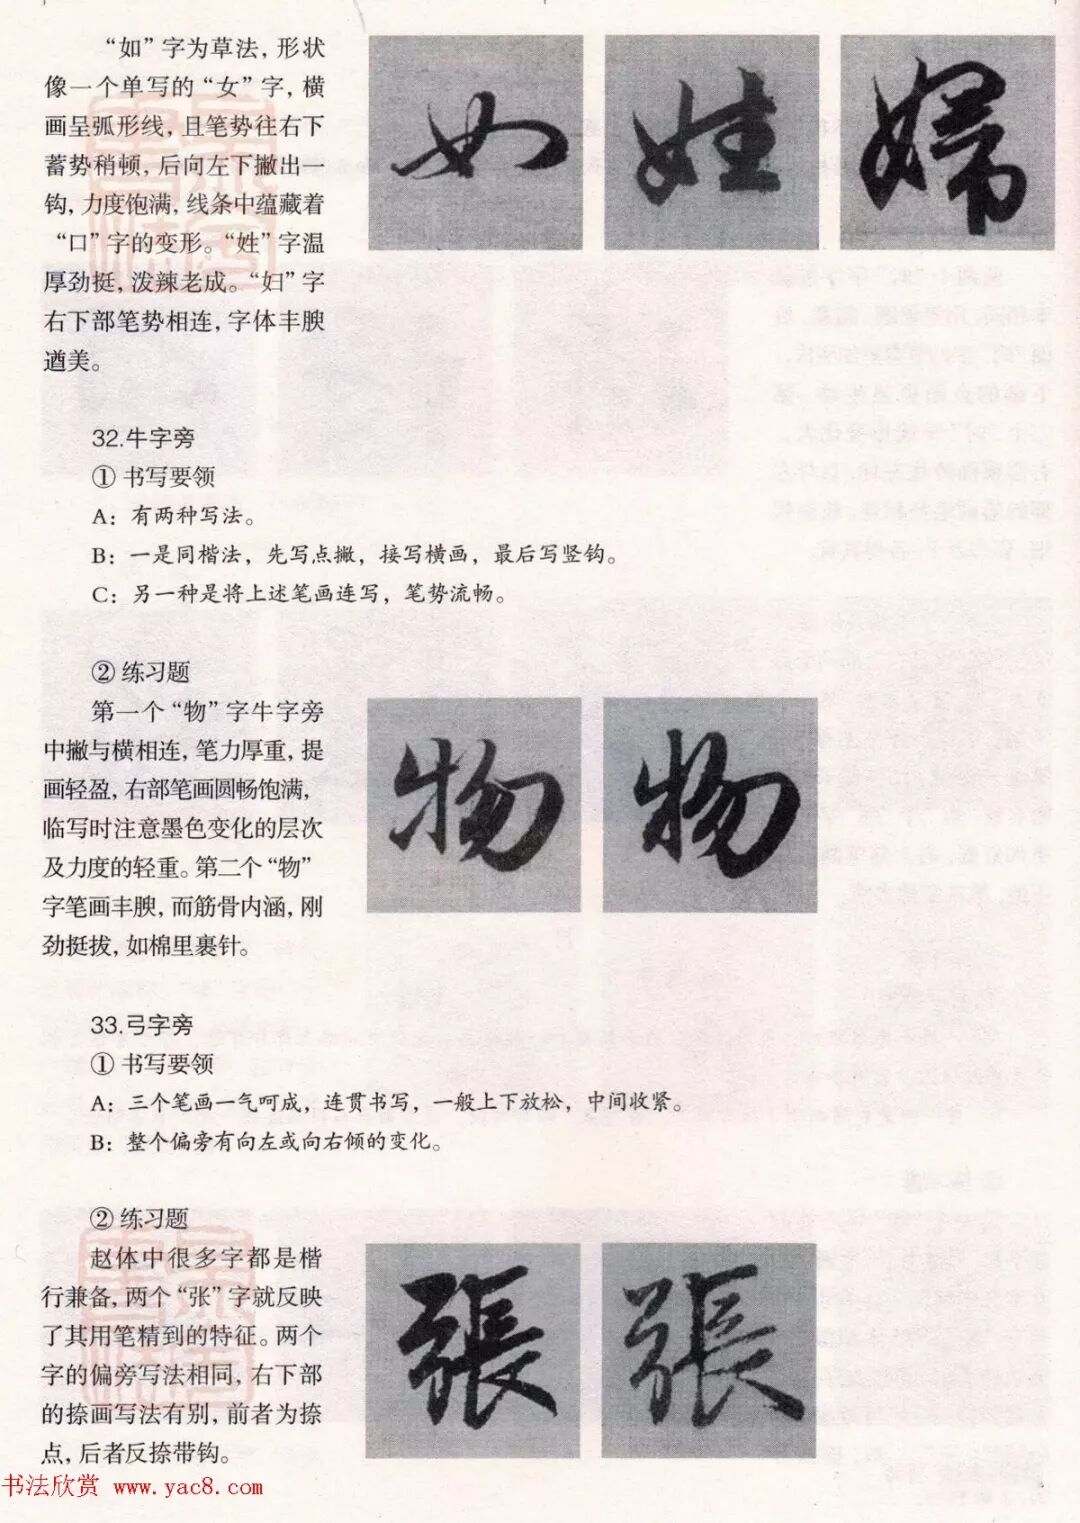 “如”字为草法，形状
像一个单写的“女”字，横
画呈弧形线，且笔势往右下
蓄势稍顿，后向左下撇出一
钩，力度饱满，线条中蕴藏着
“口”字的变形。“姓”字温
厚劲挺，泼辣老成。“妇”字
右下部笔势相连，字体丰腴
遒美。
如 姓 婦
32.牛字旁
① 书写要领
A：有两种写法。
B：一是同楷法，先写点撇，接写横画，最后写竖钩。
C：另一种是将上述笔画连写，笔势流畅。
② 练习题
第一个“物”字牛字旁
中撇与横相连，笔力厚重，提
画轻盈，右部笔画圆畅饱满，
临写时注意墨色变化的层次
及力度的轻重。第二个“物”
字笔画丰腴，而筋骨内涵，刚
劲挺拔，如棉里裹针。
物 物
33.弓字旁
① 书写要领
A：三个笔画一气呵成，连贯书写，一般上下放松，中间收紧。
B：整个偏旁有向左或向右倾的变化。
② 练习题
赵体中很多字都是楷
行兼备，两个“张”字就反映
了其用笔精到的特征。两个
字的偏旁写法相同，右下部
的捺画写法有别，前者为捺
点，后者反捺带钩。
張 張
书法欣赏 www.yac8.com